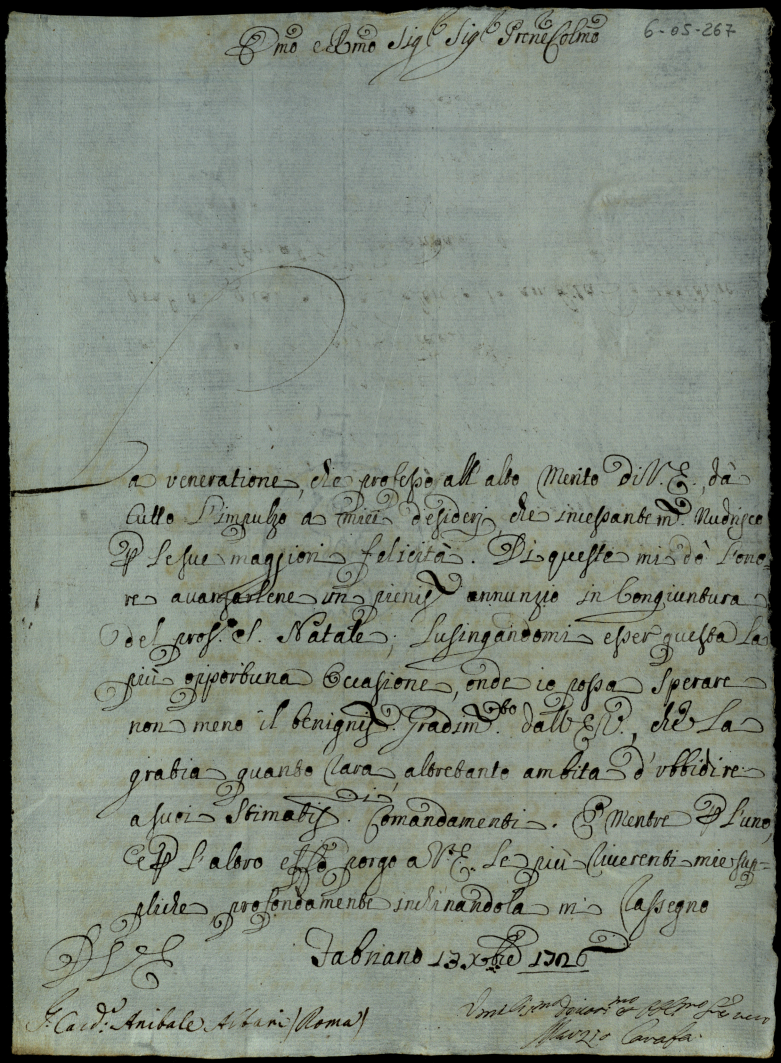 6-05-267
Em̃o e Rmo Sigr Sigr Prone Colmo
La veneratione, che professo all' alto Merito Di V. E., dà
tutto l'impulzo a miei desiderj, che incessantem. Nudrisco
p le sue maggiori felicità. Di queste mi dò l'ono
re avanzarlene un pieniss annunzio in Congiuntura
del pros.o S. Natale, lusingandomi esser questa la
più opportuna Occasione, onde io possa Sperare
non meno il benigniss. Gradim.to dall' E. V., che la
gratia quanto Rara, altretanto ambita d'vbbidire
a suoi Stimatiss. Comandamenti. E Mentre p l'uno,
e p l'altro porgo a V. E. le più Riverenti mie sup=
pliche profondamente inchinandola mi Rassegno
D V E
Fabriano 13 Xbre 1726
Sr. Card. Anibale Albani (Roma)
Marzio Carafa